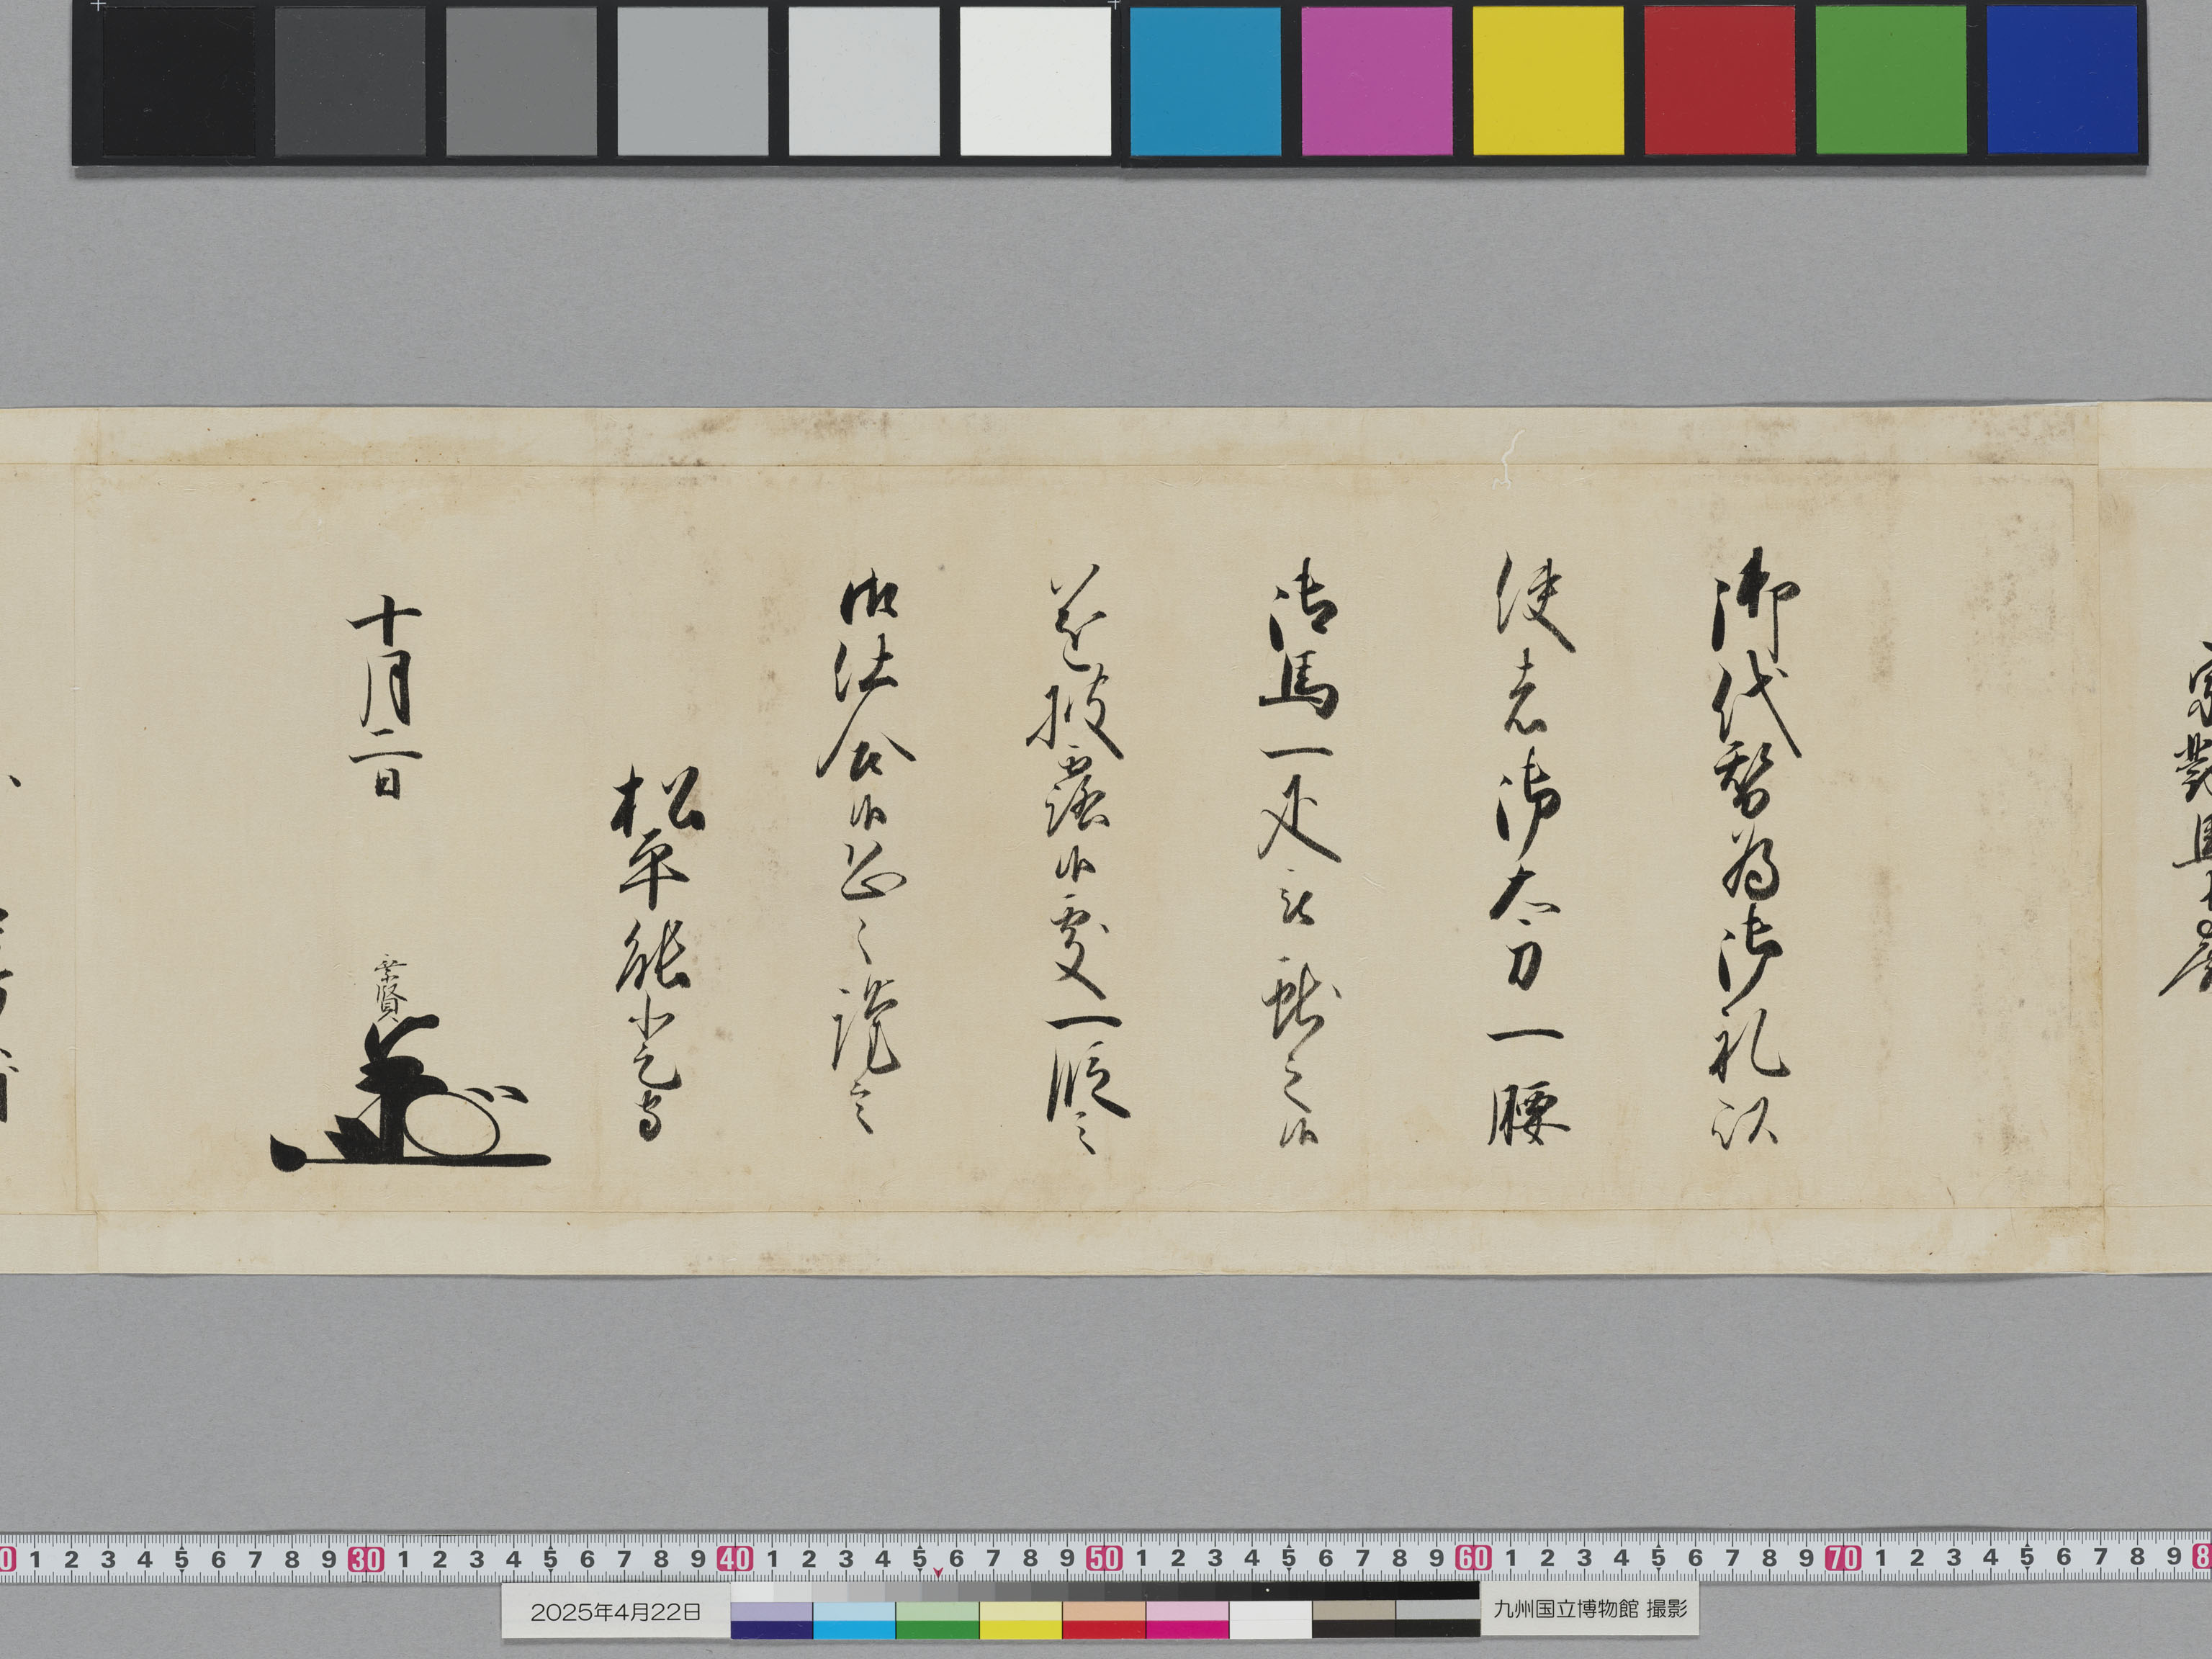 宗對馬守殿
御代替為御礼以
使者御太刀一腰
御馬一疋被献之候
遂披露候處一段之
御仕合候恐々謹言
松平能登守
十月二日
乗賢
0 1 2 3 4 5 6 7 8 9 30 1 2 3 4 5 6 7 8 9 40 1 2 3 4 5 6 7 8 9 50 1 2 3 4 5 6 7 8 9 60 1 2 3 4 5 6 7 8 9 70 1 2 3 4 5 6 7 8 9 8
2025年4月22日
九州国立博物館 撮影